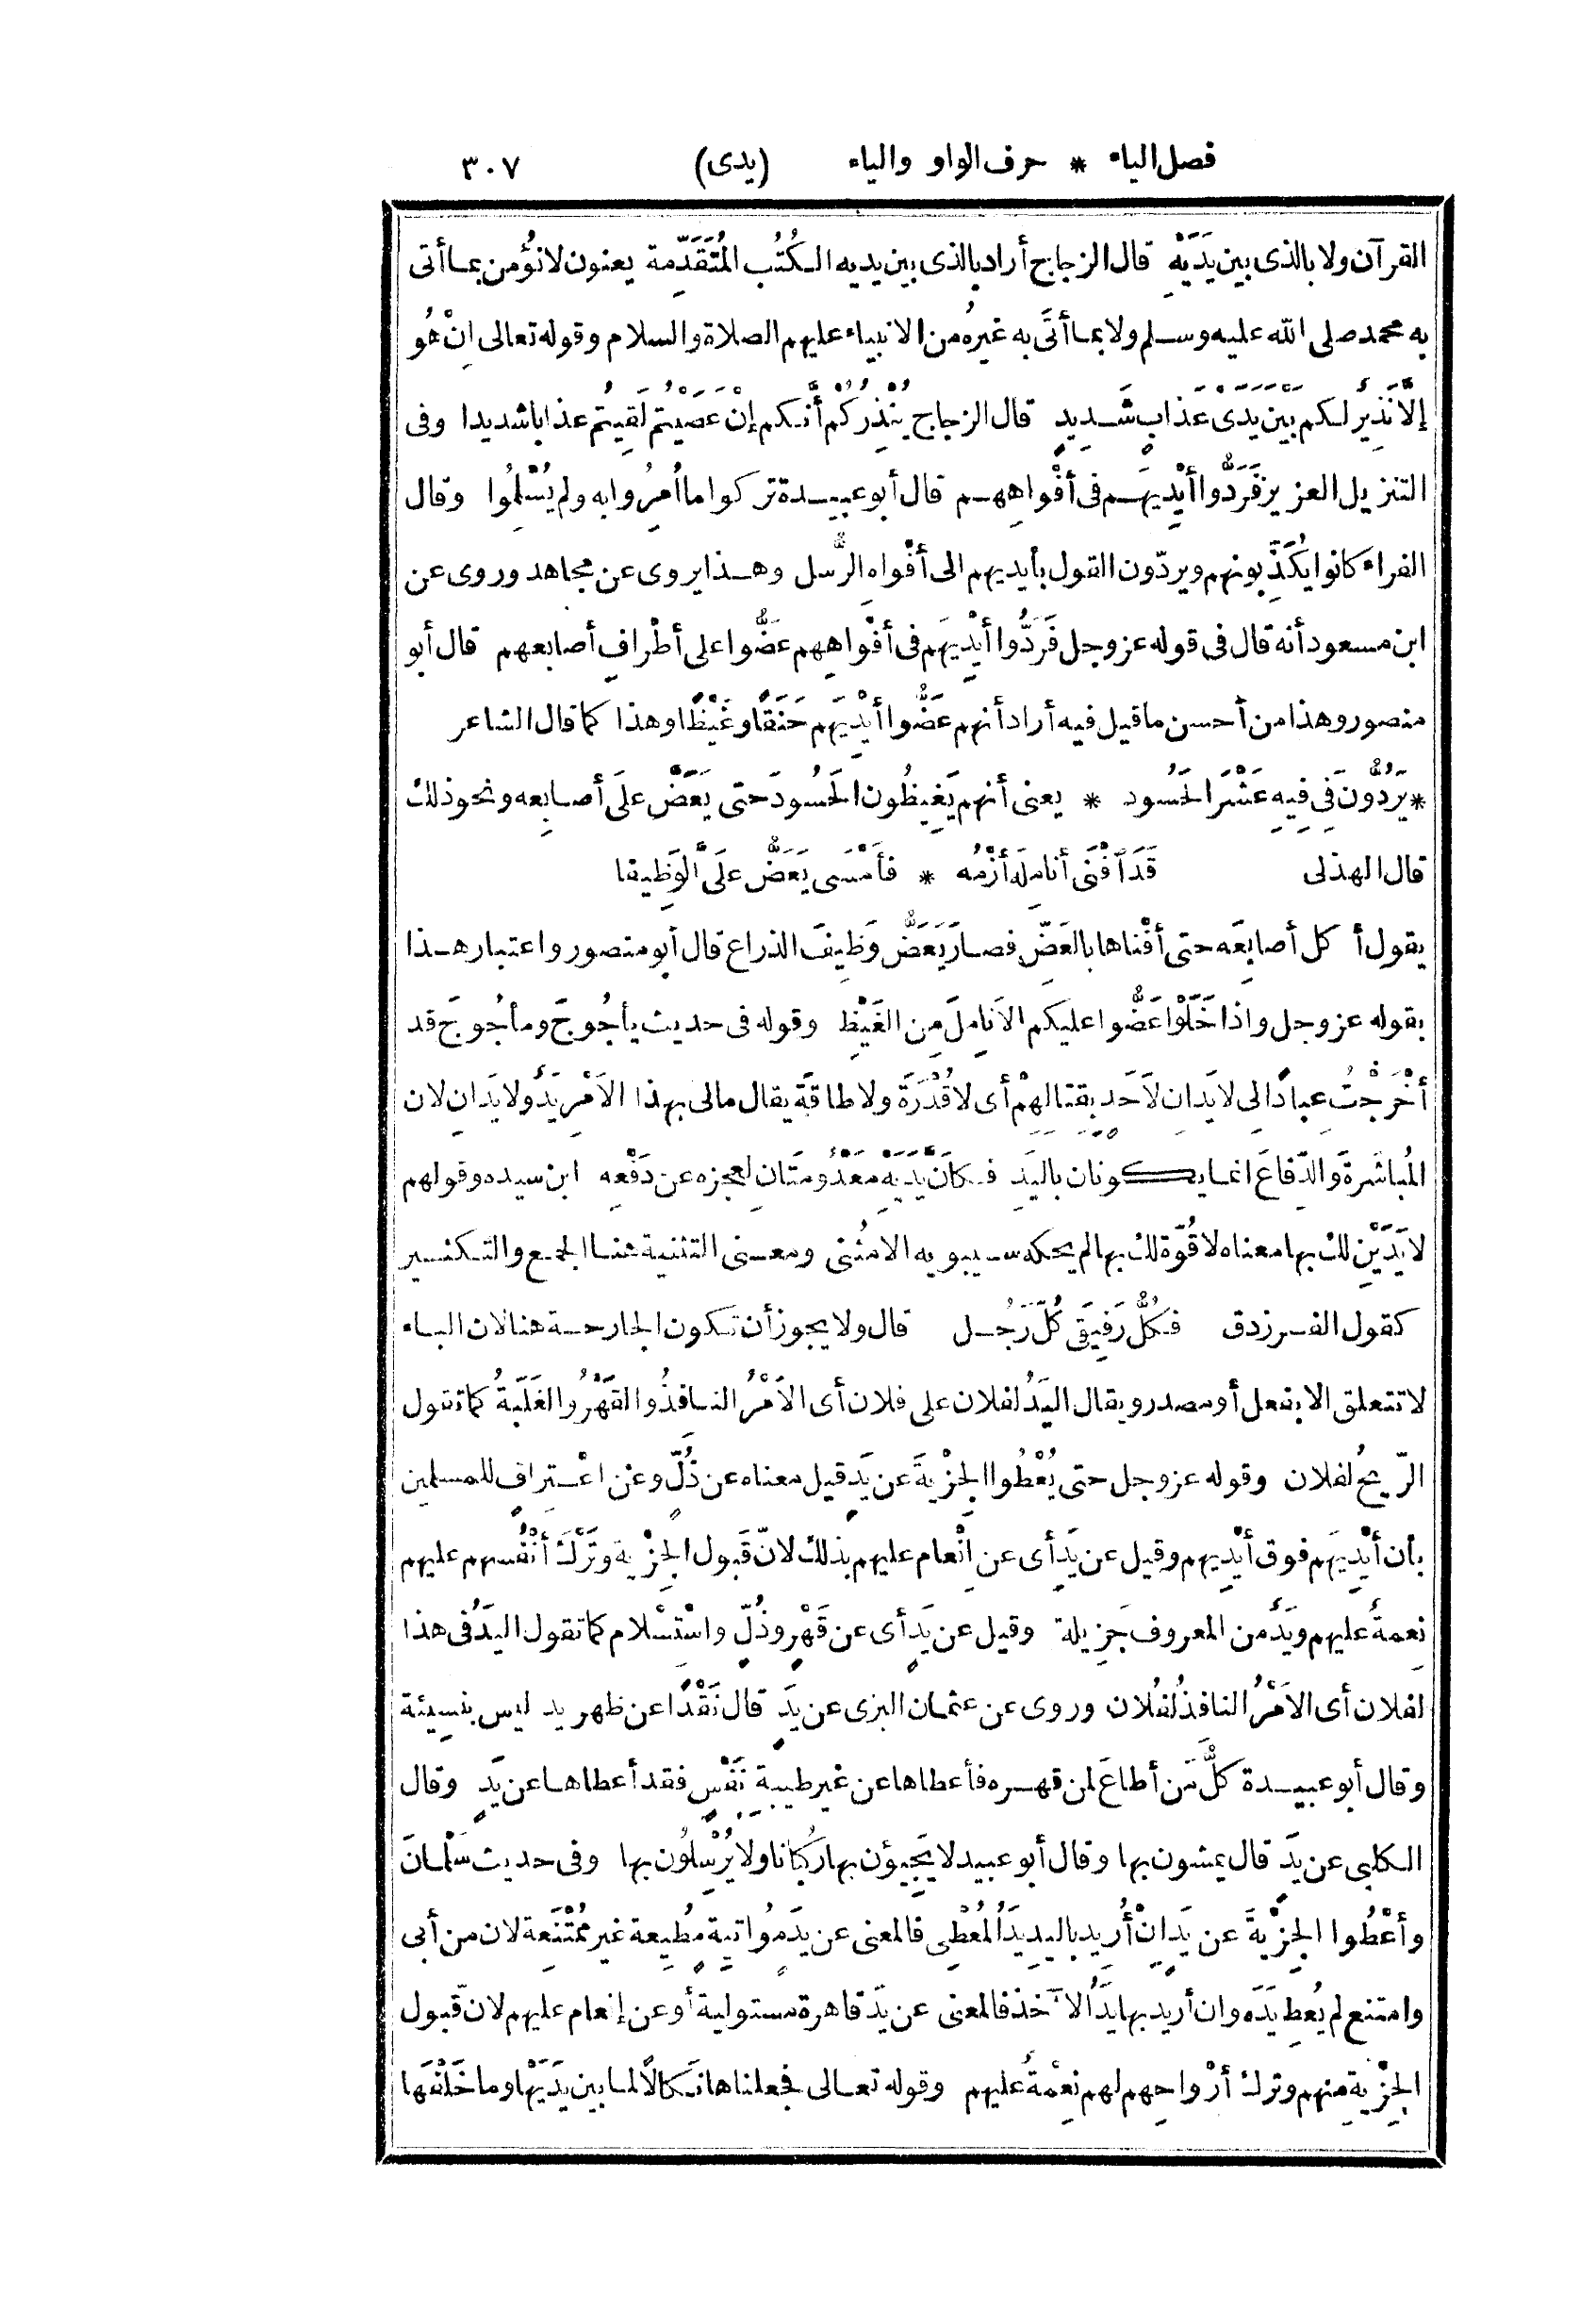 فصل الياء * حرف الواو والياء (يدى) ٣٠٧
القرآن ولا بالذى بين يَدَيْهِ قال الزجاج أراد بالذى بين يديه الكُتُب المُتَقَدِّمة يعنون لا نؤمن بما أتى
به محمد صلى الله عليه وسلم ولا بما أتَى به غيرُه من الانبياء عليهم الصلاة والسلام وقوله تعالى انْ هُو
إلَّا نَذِيرٌ لكم بَيْنَ يَدَىْ عَذابٍ شَديدٍ قال الزجاج يُنْذِرُكُمْ أنَّكم إنْ عَصَيْتُم لَقِيتُم عذابا شديدا وفى
التنزيل العزيز فَرَدُّوا أيْدِيَهم فى أفْواهِهم قال أبو عبيدة تركوا ما أُمِرُوا به ولم يُسْلِمُوا وقال
الفراء كانوا يُكَذِّبونهم ويردّون القول بأيديهم الى أفْواه الرُّسل وهذا يروى عن مجاهد وروى عن
ابن مسعود أنه قال فى قوله عز وجل فَرَدُّوا أيْدِيَهم فى أفْواهِهم عَضُّوا على أطْرافِ أصابعهم قال أبو
منصور وهذا من أحسن ما قيل فيه أراد أنهم عَضُّوا أيْدِيَهم حَنَقًا وغَيْظًا وهذا كما قال الشاعر
* يَرُدُّونَ فى فِيهِ عَشْرَ الحَسُود * يعنى أنهم يَغِيظُون الحَسُودَ حتى يَعَضَّ علَى أصابِعه ونحو ذلك
قال الهذلى قَدَ أفْنَى أنامِلَه أزْمُه * فأمْسَى يَعَضُّ علَىَّ الوَظِيفا
يقول أكل أصابِعَه حتى أفْناها بالعَضِّ فصارَ يَعَضُّ وَظِيفَ الذراع قال أبو منصور واعتبار هذا
بقوله عز وجل واذا خَلَوْا عَضُّوا عليكم الاَنامِلَ مِن الغَيْظِ وقوله فى حديث يأجُوجَ ومأجُوجَ قد
أخْرَجْتُ عِبادًا لى لا يَدانِ لاَحَدٍ بقِتالِهِمْ أى لا قُدْرَةَ ولا طاقَةَ يقال مالى بهذا الاَمْرِ يَدٌ ولا يَدانِ لان
المُباشَرةَ والدِّفاعَ انما يكونان باليَدِ فكأنَّ يَدَيْهِ مَعْدُومَتانِ لعجزه عن دَفْعِه ابن سيده وقولهم
لا يَدَيْنِ لك بها معناه لا قُوّة لك بها لم يحكه سيبويه الا مُثنى ومعنى التثنية هنا الجمع والتكثير
كقول الفرزدق فكُلُّ رَفِيقَى كُلِّ رَجُل قال ولا يجوز أن تكون الجارحة هنا لان الباء
لا تتعلق الا بفعل أو مصدر ويقال اليَدُ لفلان على فلان أى الاَمْرُ النافذُ والقَهْرُ والغَلَبَةُ كما تقول
الرّيحُ لفلان وقوله عز وجل حتى يُعْطُوا الجِزْيةَ عن يَدٍ قيل معناه عن ذُلٍّ وعن اعْتِرافٍ للمسلمين
بأن أيْدِيَهم فوق أيْدِيهم وقيل عن يَدٍ أى عن انْعام عليهم بذلك لانّ قَبول الجِزْية وتَرْكَ أنْفُسهم عليهم
نِعمةٌ عليهم ويَدٌ من المعروف جَزِيلة وقيل عن يَدٍ أى عن قَهْرٍ وذُلٍّ واسْتِسْلام كما تقول اليَدُ فى هذا
لفلان أى الاَمْرُ النافذُ لفُلان وروى عن عثمان البزى عن يَدٍ قال نَقْدًا عن ظهر يد ليس بنسِيئة
وقال أبو عبيدة كلُّ مَن أطاعَ لمن قهره فأعطاها عن غير طيبةِ نَفْسٍ فقد أعطاها عن يَدٍ وقال
الكلبى عن يَدٍ قال يمشون بها وقال أبو عبيد لا يَجِيؤن بها رُكْبانا ولا يُرْسِلُون بها وفى حديث سَلْمانَ
وأعْطُوا الجِزْيةَ عن يَدٍ انْ أُرِيد باليدِ يَدُ المُعْطِى فالمعنى عن يدٍ مُواتيةٍ مُطِيعة غير مُمْتَنِعة لان من أبى
وامتنع لم يُعطِ يَدَه وان أريد بها يَدُ الآخذ فالمعنى عن يَدٍ قاهرة مستولية أو عن إنعام عليهم لان قَبول
الجِزْيةِ منهم وترك أرْواحِهم لهم نِعْمةٌ عليهم وقوله تعالى فجعلناها نَكالاً لما بين يَدَيْها وما خَلْفَها